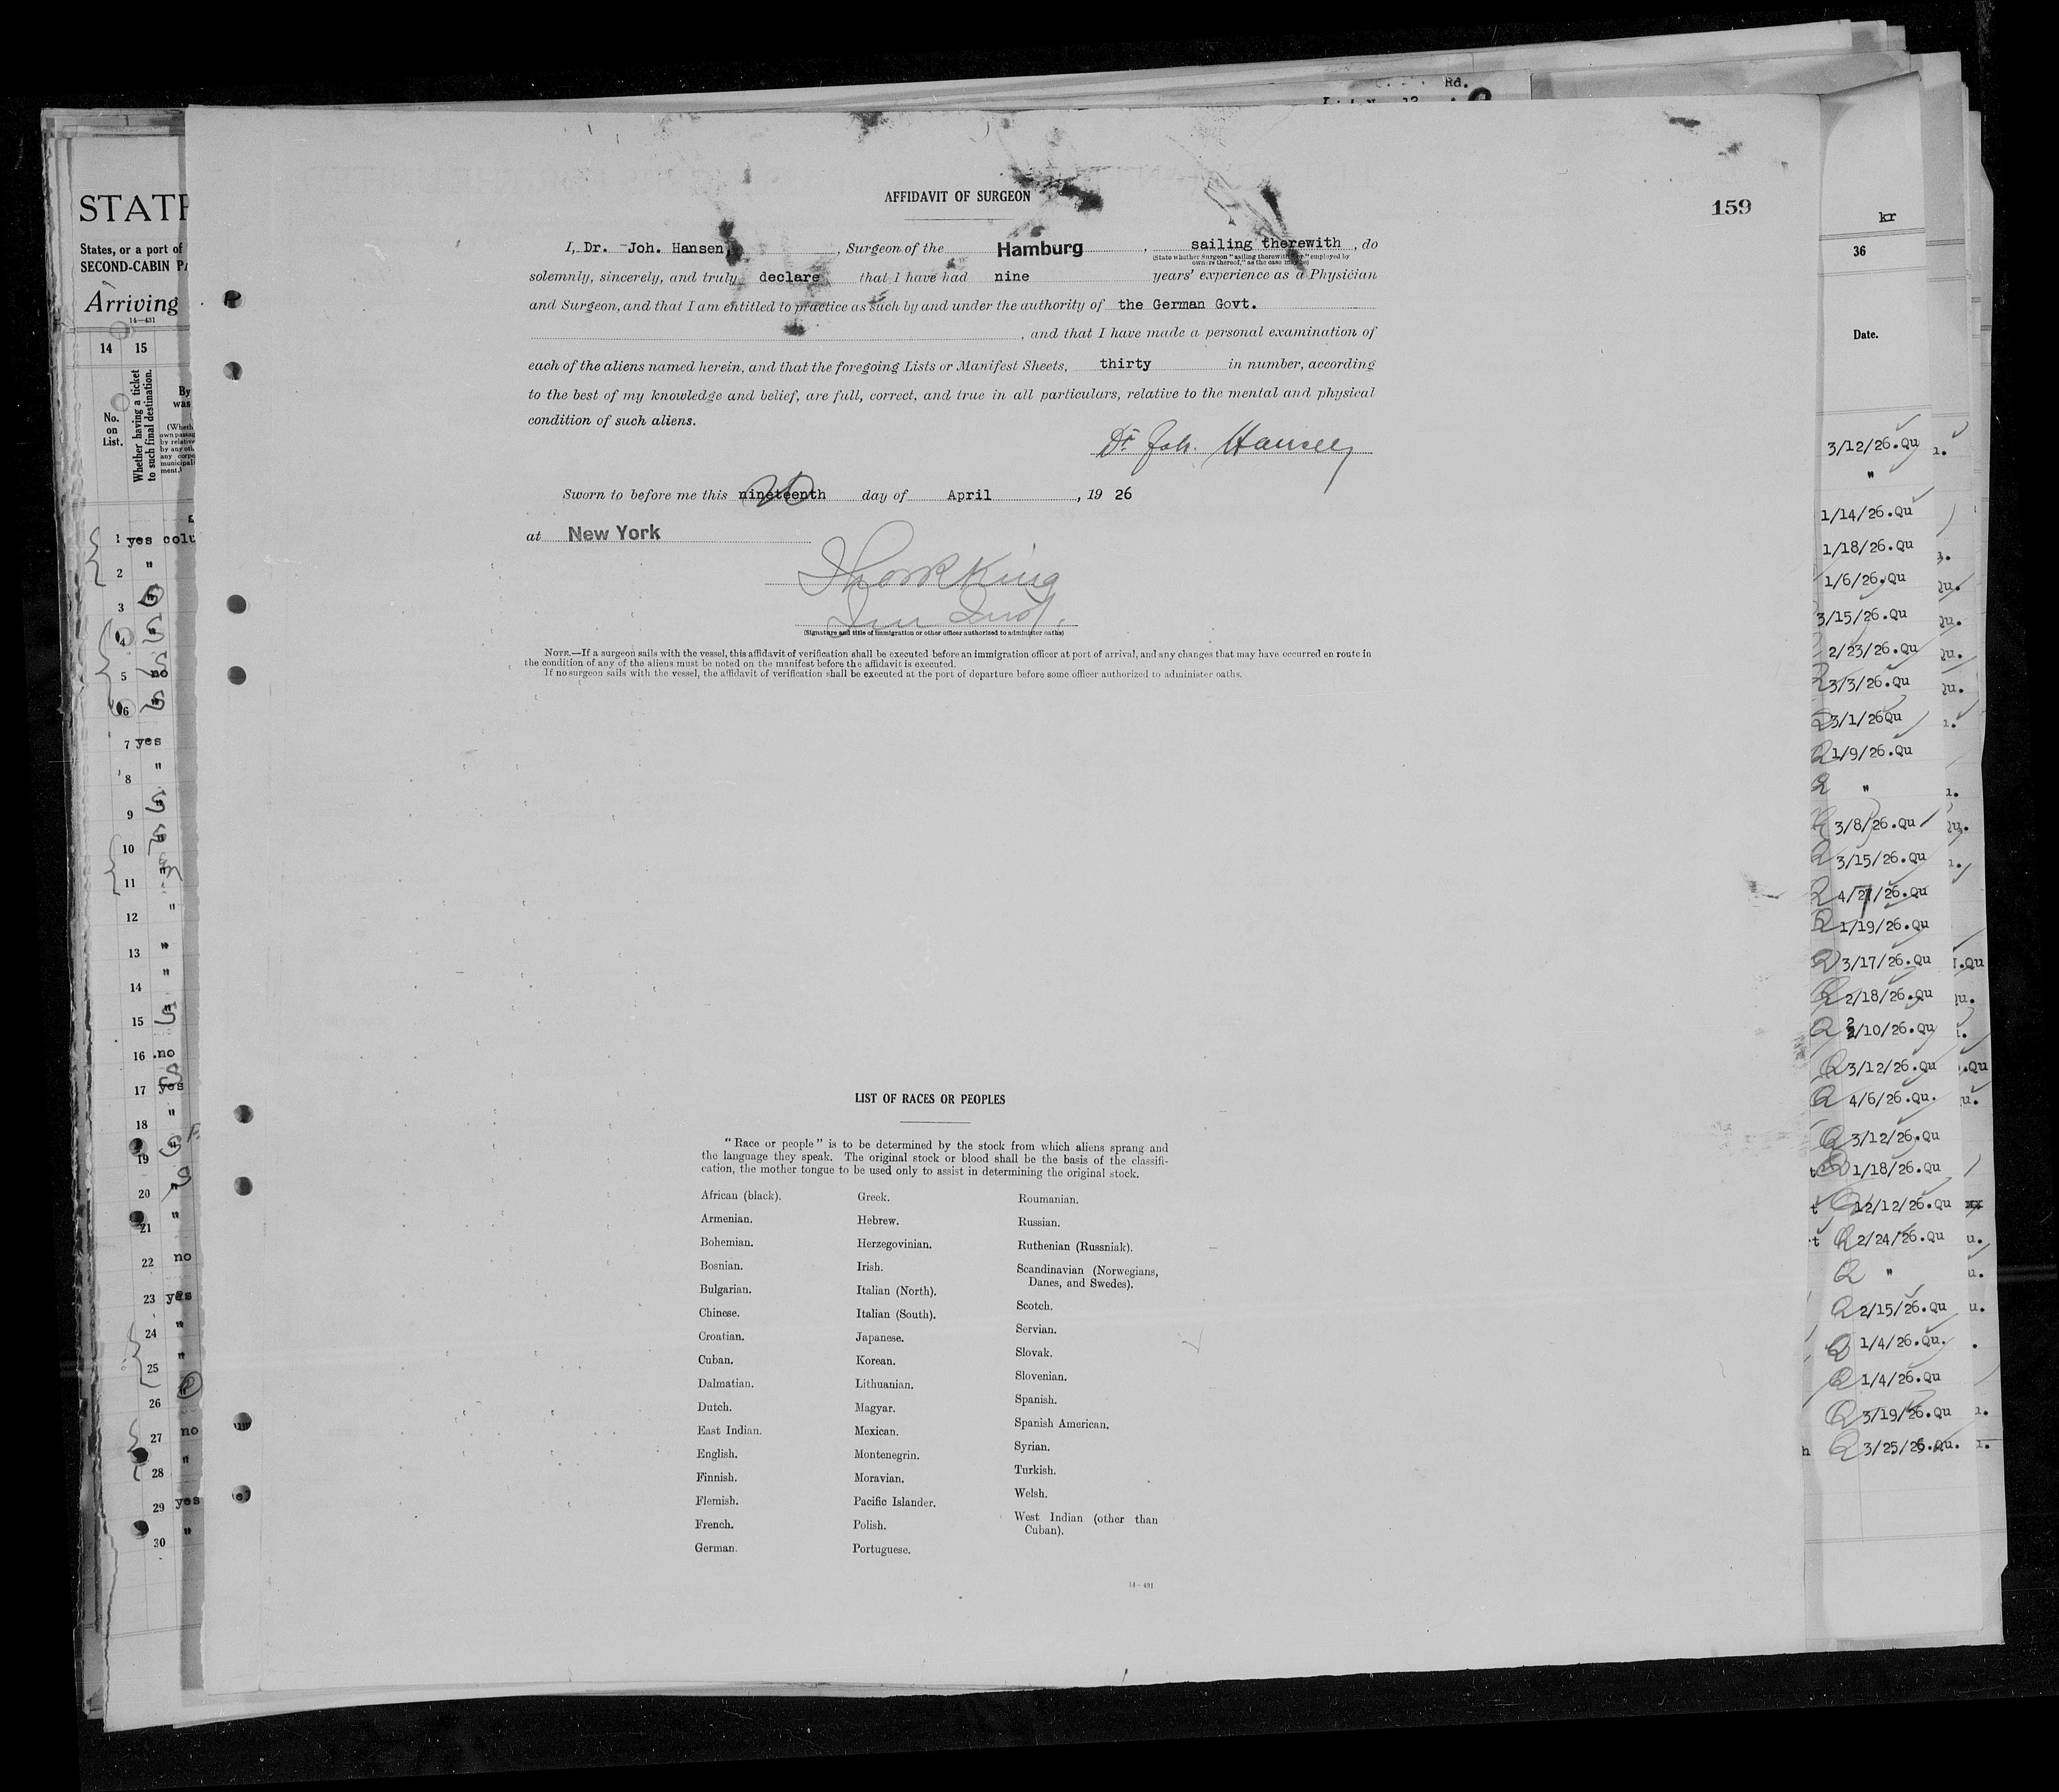 Rd.
AFFIDAVIT OF SURGEON
159
I, Dr. Joh. Hansen, , Surgeon of the Hamburg , sailing therewith , do
(State whether Surgeon "sailing therewith," or "employed by
owners thereof," as the case may be)
solemnly, sincerely, and truly declare that I have had nine years' experience as a Physician
and Surgeon, and that I am entitled to practice as such by and under the authority of the German Govt.
, and that I have made a personal examination of
each of the aliens named herein, and that the foregoing Lists or Manifest Sheets, thirty in number, according
to the best of my knowledge and belief, are full, correct, and true in all particulars, relative to the mental and physical
condition of such aliens.
Dr Joh. Hansen
Sworn to before me this nineteenth 20 day of April , 19 26
at New York
King
(Signature and title of immigration or other officer authorized to administer oaths)
NOTE.—If a surgeon sails with the vessel, this affidavit of verification shall be executed before an immigration officer at port of arrival, and any changes that may have occurred en route in
the condition of any of the aliens must be noted on the manifest before the affidavit is executed.
If no surgeon sails with the vessel, the affidavit of verification shall be executed at the port of departure before some officer authorized to administer oaths.
LIST OF RACES OR PEOPLES
"Race or people" is to be determined by the stock from which aliens sprang and
the language they speak. The original stock or blood shall be the basis of the classifi-
cation, the mother tongue to be used only to assist in determining the original stock.
African (black).
Armenian.
Bohemian.
Bosnian.
Bulgarian.
Chinese.
Croatian.
Cuban.
Dalmatian.
Dutch.
East Indian.
English.
Finnish.
Flemish.
French.
German.
Greek.
Hebrew.
Herzegovinian.
Irish.
Italian (North).
Italian (South).
Japanese.
Korean.
Lithuanian.
Magyar.
Mexican.
Montenegrin.
Moravian.
Pacific Islander.
Polish.
Portuguese.
Roumanian.
Russian.
Ruthenian (Russniak).
Scandinavian (Norwegians,
Danes, and Swedes).
Scotch.
Servian.
Slovak.
Slovenian.
Spanish.
Spanish American.
Syrian.
Turkish.
Welsh.
West Indian (other than
Cuban).
14—491
STATE
States, or a port of
SECOND-CABIN PA
Arriving
14—431
14 15
No.
on
List.
Whether having a ticket
to such final destination.
By
was
1 yes
2 "
3
4
5 no
6
7 yes
8 "
9
10
11
12 "
13 "
14 "
15 "
16 no
17 yes
18 "
19
20
21 "
22 no
23 yes
24 "
25 "
26
27 no
28 "
29 yes
30 "
kr
36
Date.
3/12/26.Qu
"
1/14/26.Qu
1/18/26.Qu
1/6/26.Qu
3/15/26.Qu
2/23/26.Qu
3/3/26.Qu
3/1/26Qu
1/9/26.Qu
"
3/8/26.Qu
3/15/26.Qu
4/7/26.Qu
1/19/26.Qu
3/17/26.Qu
2/18/26.Qu
2/10/26.Qu
3/12/26.Qu
4/6/26.Qu.
3/12/26.Qu
1/18/26.Qu
12/12/26.Qu
2/24/26.Qu
"
2/15/26.Qu
1/4/26.Qu.
1/4/26.Qu
3/19/26.Qu
3/25/26.Qu.